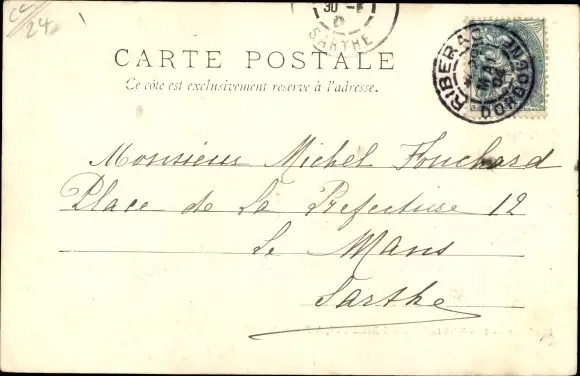 CC/24
30 -5
SARTHE
CARTE POSTALE
Ce côté est exclusivement réservé à l'adresse.
RIBERAC
MAI
04
DORDOGNE
Monsieur Michel Fouchard
Place de La Préfecture 12
Le Mans
Sarthe